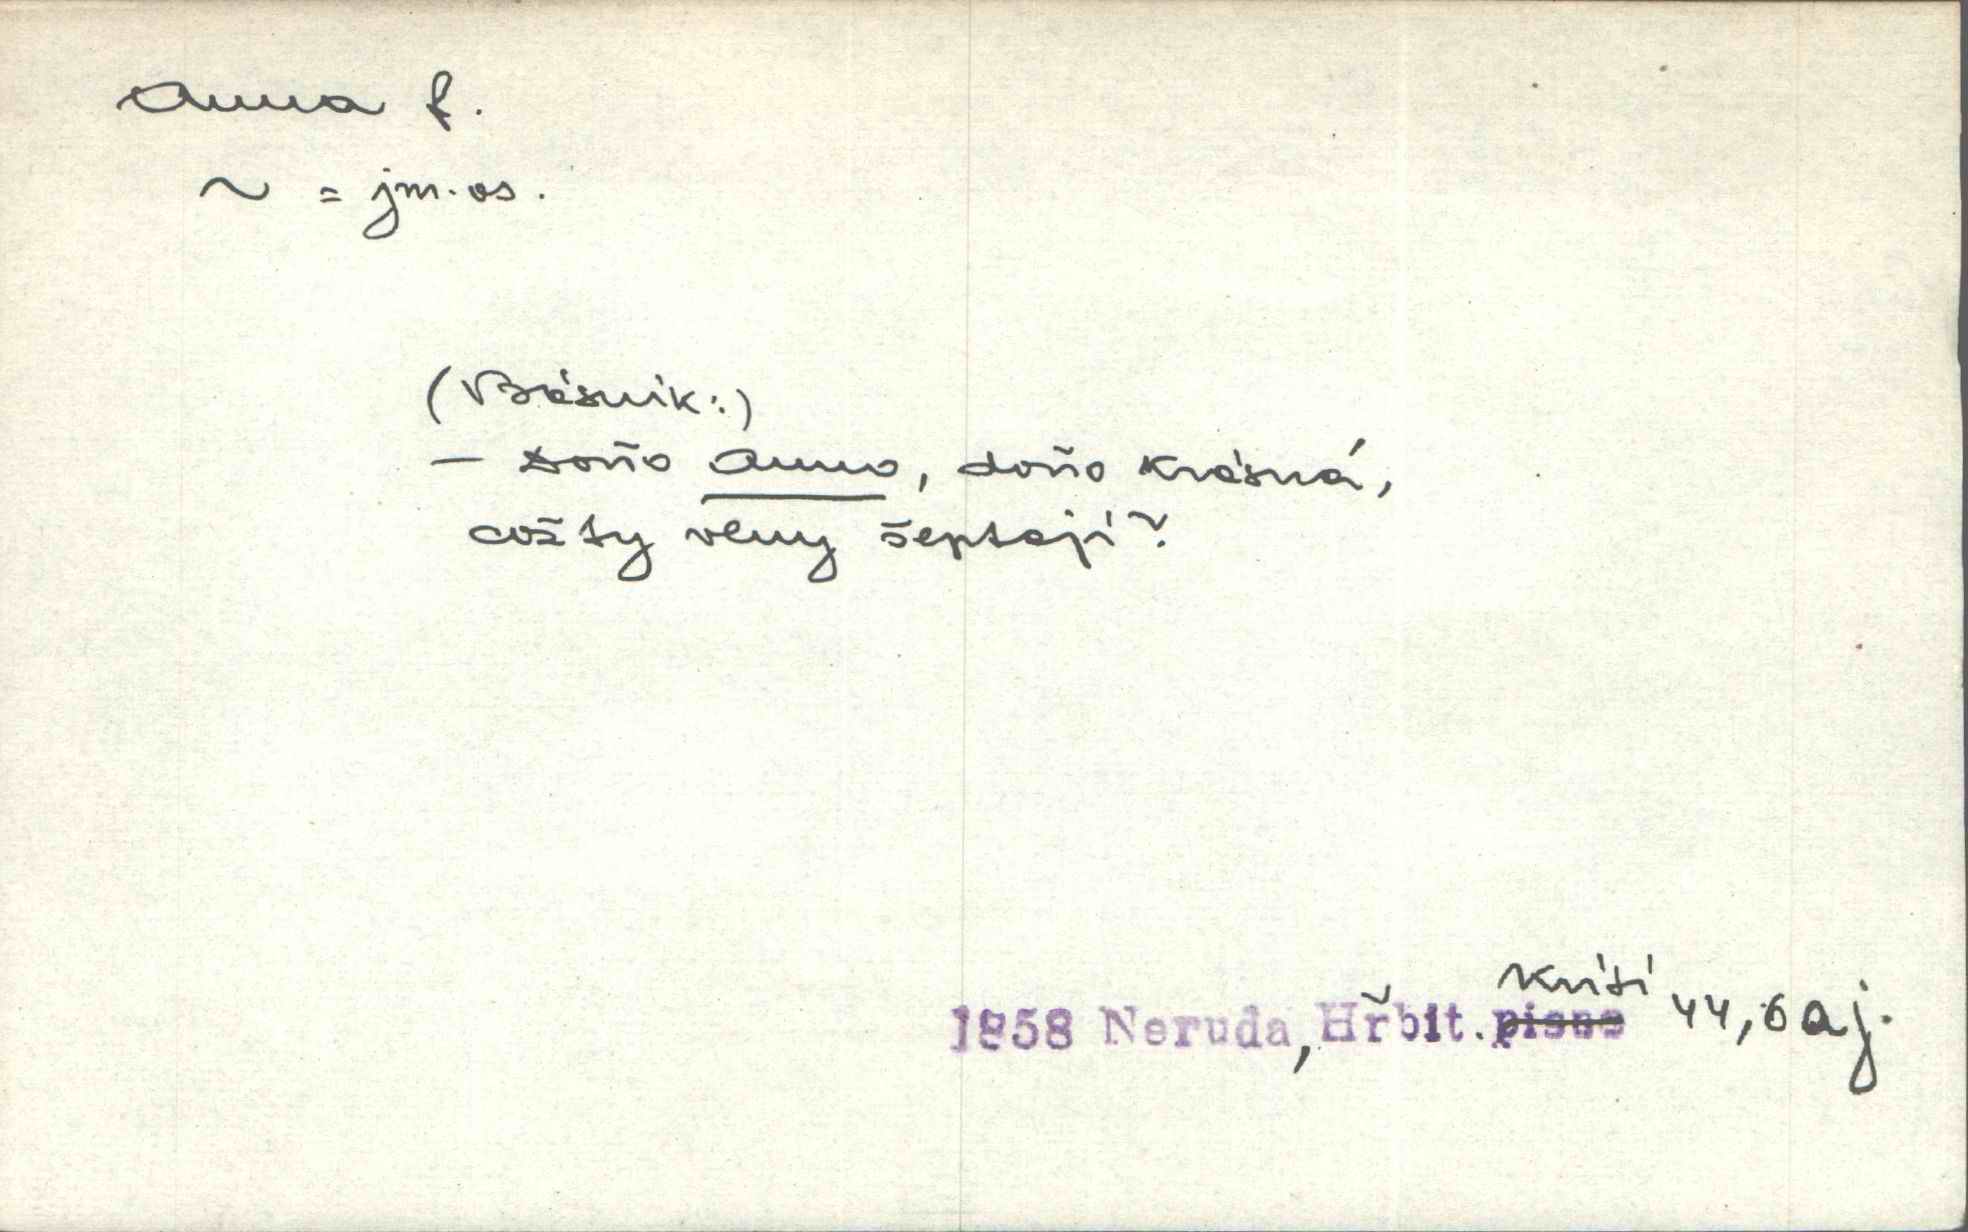 Anna f.
~ = jm. os.
(Básník:)
– Doño Anno, doño krásná,
cožty vlny šeptají?
kvítí
1858 Neruda, Hřbit. písně 44,6 aj.